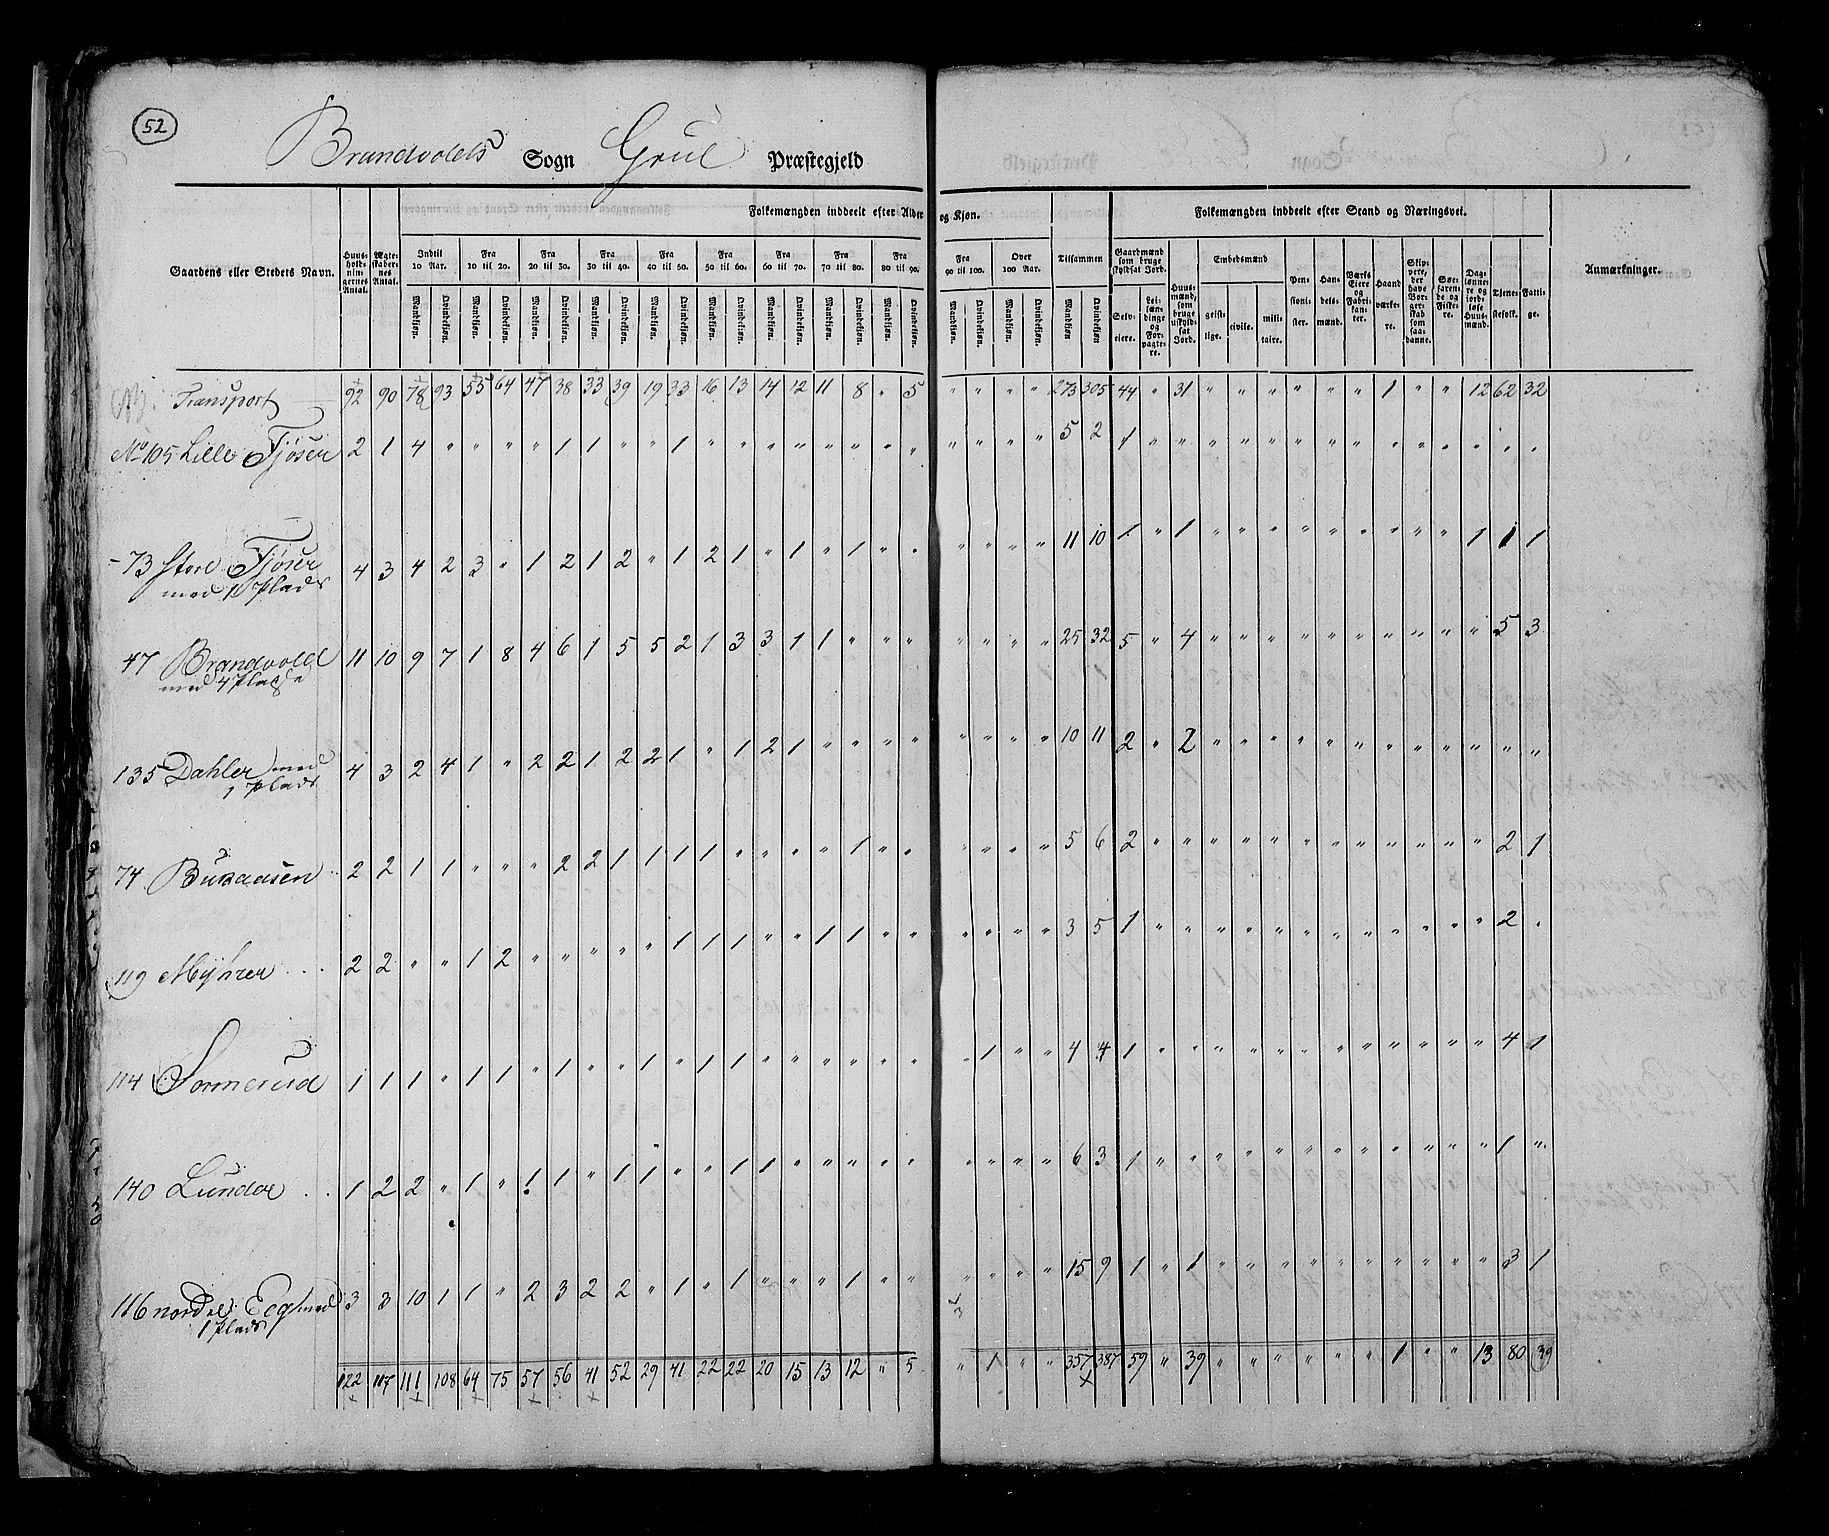 52
Brandvolds Sogn Grue Præstegjeld
Folkemængden inddeelt efter Alder og Kjøn.
Folkemængden inddeelt efter Stand og Næringsvei.
Gaardens eller Stedets Navn.
Huusholdningernes Antal.
Ægteskabernes Antal.
Indtil 10 Aar.
Fra 10 til 20.
Fra 20 til 30.
Fra 30 til 40.
Fra 40 til 50.
Fra 50 til 60.
Fra 60 til 70.
Fra 70 til 80.
Fra 80 til 90.
Fra 90 til 100.
Over 100 Aar.
Tilsammen
Mandkjøn. Qvindekjøn. Mandkjøn. Qvindekjøn. Mandkjøn. Qvindekjøn. Mandkjøn. Qvindekjøn. Mandkjøn. Qvindekjøn. Mandkjøn. Qvindekjøn. Mandkjøn. Qvindekjøn. Mandkjøn. Qvindekjøn. Mandkjøn. Qvindekjøn. Mandkjøn. Qvindekjøn. Mandkjøn. Qvindekjøn. Mandkjøn Qvindekjøn
Gaardmænd som bruge skyldsat Jord.
Selveiere.
Leilændinge og Forpagtere.
Huusmænd, som bruge uskyldsat Jord.
Embedsmænd
geistlige.
civile.
militaire.
Pensionister.
Handelsmænd.
Værks Eiere og Fabrikanter.
Haandværkere.
Skippere, der have Borgerskab som saadanne.
Søefarende og Fiskere.
Daglønnere og jordløse Huusmænd.
Tjenestefolk.
Fattige.
Anmærkninger.
Transport 92 90 78 93 55 64 47 38 33 39 19 33 16 13 14 12 11 8 " 5 " " " " 273 305 44 " 31 " " " " " " 1 " " 12 62 32
No 105 Lille Tjøser 2 1 4 " " " " 1 1 " " 1 " " " " " " " " " " " " 5 2 1 " " " " " " " " " " " " " "
- 73 Store Tjøser 4 3 4 2 3 " 1 2 1 2 " 1 2 1 " 1 " 1 " " " " " " 11 10 1 " 1 " " " " " " " " " 1 1 1
med 1 Plads
47 Brandvold 11 10 9 7 1 8 4 6 1 5 5 2 1 3 3 1 1 " " " " " " " 25 32 5 " 4 " " " " " " " " " " 5 3
med 4 Pladse
135 Dahler med 4 3 2 4 1 " 2 2 1 2 2 1 " 1 2 1 " " " " " " " " 10 11 2 " 2 " " " " " " " " " " " "
1 Plads
74 Buraasen 2 2 1 1 " " " 2 2 1 1 1 1 " " " " 1 " " " " " " 5 6 2 " " " " " " " " " " " " 2 1
119 Myhrer 2 2 " " 1 2 " " " " " 1 1 1 " " 1 1 " " " " " " 3 5 1 " " " " " " " " " " " " 2 "
114 Sormerud 1 1 1 " 1 1 " 1 " " 1 " 1 1 " " " " " " " 1 " " 4 4 1 " " " " " " " " " " " " 4 1
140 Lundøe 1 2 2 " 1 " 1 1 " 1 1 " " 1 1 " " " " " " " " " 6 3 1 " " " " " " " " " " " " 1 "
116 nordre Eeg med 3 3 10 1 1 " 2 3 2 2 " 1 " 1 " " " 1 " " " " " " 15 9 1 " 1 " " " " " " " " " " 3 1
1 Plads
122 117 111 108 64 75 57 56 41 52 29 41 22 22 20 15 13 12 " 5 " 1 " " 357 387 59 " 39 " " " " " " 1 " " 13 80 39